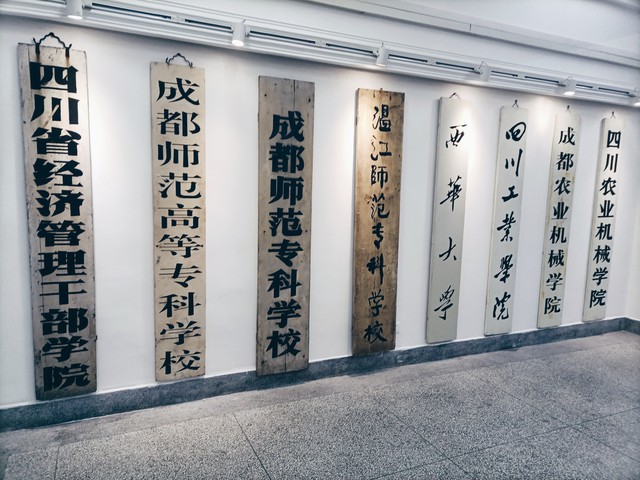 四川省经济管理干部学院
成都师范高等专科学校
成都师范专科学校
温江师范专科学校
西华大学
四川工业学院
成都农业机械学院
四川农业机械学院